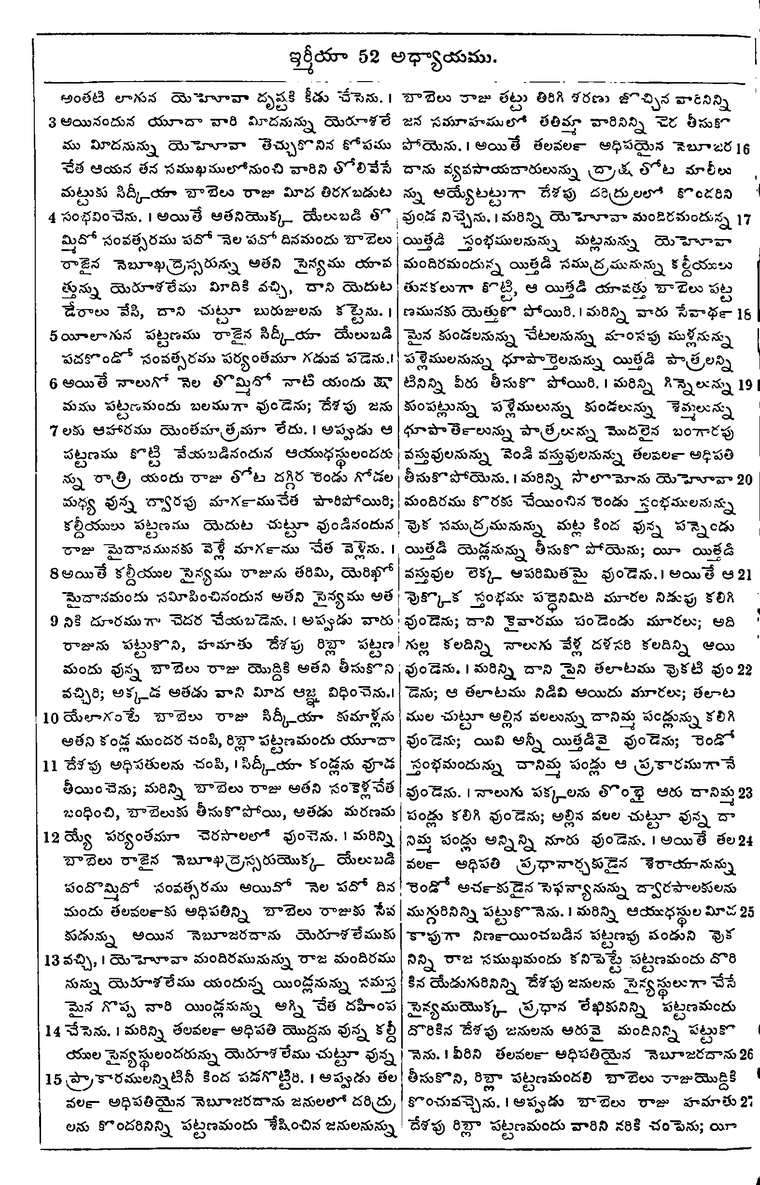 ఇర్మీయా 52 అధ్యాయము.
అంతటి లాగున యెహోవా దృష్టకి కీడు చేసెను. ।
3 అయినందున యూదా వారి మీదనున్ను యెరూశలే
ము మీదనున్ను యెహోవా తెచ్చుకొనిన కోపము
చేత ఆయన తన సముఖములోనుంచి వారిని తోలివేసే
మట్టుకు సిద్కీయా బాబెలు రాజు మీద తిరగబడుట
4 సంభవించెను. । అయితే ఆతనియొక్క యేలుబడి తొ
మ్మిదో సంవత్సరము పదో నెల పదో దినమందు బాబెలు
రాజైన నెబూఖద్రెస్సరున్ను అతని సైన్యము యావ
త్తున్ను యెరూశలేము మీదికి వచ్చి, దాని యెదుట
డేరాలు వేసి, దాని చుట్టూ బురుజులను కట్టెను. ।
5 యీలాగున పట్టణము రాజైన సిద్కీయా యేలుబడి
పదకొండో సంవత్సరము పర్యంతమూ గడువ పడెను. ।
6 అయితే నాలుగో నెల తొమ్మిదో నాటి యందు క్షా
మము పట్టణమందు బలముగా వుండెను; దేశపు జను
7 లకు ఆహారము యెంతమాత్రమూ లేదు. । అప్పుడు ఆ
పట్టణము కొట్టి వేయబడినందున ఆయుధస్థులందరు
న్ను రాత్రి యందు రాజు తోట దగ్గిర రెండు గోడల
మధ్య వున్న ద్వారపు మార్గముచేత పారిపోయిరి;
కల్దీయులు పట్టణము యెదుట చుట్టూ వుండినందున
రాజు మైదానమునకు వెళ్లే మార్గము చేత వెళ్లెను. ।
8 అయితే కల్దీయుల సైన్యము రాజును తరిమి, యెరిఖో
మైదానమందు సమీపించినందున అతని సైన్యము అత
9 నికి దూరముగా చెదర చేయబడెను. । అప్పుడు వారు
రాజును పట్టుకొని, హమాతు దేశపు రిబ్లా పట్టణ
మందు వున్న బాబెలు రాజు యొద్దికి అతని తీసుకొని
వచ్చిరి; అక్కడ అతడు వాని మీద ఆజ్ఞ విధించెను. ।
10 యేలాగంటే బాబెలు రాజు సిద్కీయా కుమార్లను
ఆతని కండ్ల ముందర చంపి, రిబ్లా పట్టణమందు యూదా
11 దేశపు అధిపతులను చంపి, । సిద్కీయా కండ్లను వూడ
తీయించెను; మరిన్ని బాబెలు రాజు అతని సంకెళ్లచేత
బంధించి, బాబెలుకు తీసుకొపోయి, అతడు మరణమ
12 య్యే పర్యంతమూ చెరసాలలో వుంచెను. । మరిన్ని
బాబెలు రాజైన నెబూఖద్రెస్సరుయొక్క యేలుబడి
పందొమ్మిదో సంవత్సరము అయిదో నెల పదో దిన
మందు తలవర్లకు అధిపతిన్ని బాబెలు రాజుకు సేవ
కుడున్ను అయిన నెబూజరదాను యెరూశలేముకు
13 వచ్చి, । యెహోవా మందిరమునున్ను రాజ మందిరము
నున్ను యెరూశలేము యందున్న యిండ్లనున్ను సమస్త
మైన గొప్ప వారి యిండ్లనున్ను అగ్ని చేత దహింప
14 చేసెను. । మరిన్ని తలవర్ల అధిపతి యొద్దను వున్న కల్దీ
యుల సైన్యస్థులందరున్ను యెరూశలేము చుట్టూ వున్న
15 ప్రాకారములన్నిటినీ కింద పడగొట్టిరి. । అప్పుడు తల
వర్ల అధిపతియైన నెబూజరదాను జనులలో దరిద్రు
లను కొందరినిన్ని పట్టణమందు శేషించిన జనులనున్ను
బాబెలు రాజు తట్టు తిరిగి శరణు జొచ్చిన వారినిన్ని
జన సమూహములో తతిమ్మా వారినిన్ని చెర తీసుకొ
పోయెను. । అయితే తలవర్ల అధిపయైన నెబూజర 16
దాను వ్యవసాయదారులున్ను ద్రాక్ష తోట మాలీలు
న్ను అయ్యేటట్టుగా దేశపు దరిద్రులలో కొందరిని
వుండ నిచ్చెను. । మరిన్ని యెహోవా మందిరమందున్న 17
యిత్తడి స్తంభములనున్ను మట్లనున్ను యెహోవా
మందిరమందున్న యిత్తడి సముద్రమునున్ను కల్దీయులు
తునకలుగా కొట్టి, ఆ యిత్తడి యావత్తు బాబెలు పట్ట
ణమునకు యెత్తుకొ పోయిరి. । మరిన్ని వారు సేవార్థ 18
మైన కుండలనున్ను చేటలనున్ను మాంసపు ముళ్లనున్ను
పళ్లెములనున్ను ధూపార్తెలనున్ను యిత్తడి పాత్రలన్ని
టినిన్ని వీరు తీసుకొ పోయిరి. । మరిన్ని గిన్నెలున్ను 19
కుంపట్లున్ను పళ్లెములున్ను కుండలున్ను శెమ్మెలున్ను
ధూపార్తెలున్ను పాత్రలున్ను మొదలైన బంగారపు
వస్తువులనున్ను వెండి వస్తువులనున్ను తలవర్ల అధిపతి
తీసుకొపోయెను. । మరిన్ని సొలొహెను యెహోవా 20
మందిరము కొరకు చేయించిన రెండు స్తంభములనున్ను
వొక సముద్రమునున్ను మట్ల కింద వున్న పన్నెండు
యిత్తడి యెడ్లనున్ను తీసుకొ పోయెను; యీ యిత్తడి
వస్తువుల లెక్క అపరిమితమై వుండెను. । అయితే ఆ 21
వొక్కొక స్తంభము పద్దెనిమిది మూరల నిడుపు కలిగి
వుండెను; దాని కైవారము పండెండు మూరలు; అది
గుల్ల కలదిన్ని నాలుగు వేళ్ల దళసరి కలదిన్ని ఆయి
వుండెను. । మరిన్ని దాని పైని తలాటము వొకటి వుం 22
డెను; ఆ తలాటము నిడివి అయిదు మూరలు; తలాట
ముల చుట్టూ అల్లిన వలలున్ను దానిమ్మ పండ్లున్ను కలిగి
వుండెను; యివి అన్నీ యిత్తడివై వుండెను; రెండో
స్తంభమందున్ను దానిమ్మ పండ్లు ఆ ప్రకారముగానే
వుండెను. । నాలుగు పక్కలను తొంభై ఆరు దానిమ్మ 23
పండ్లు కలిగి వుండెను; అల్లిన వలల చుట్టూ వున్న దా
నిమ్మ పండ్లు అన్నిన్ని నూరు వుండెను. । అయితే తల 24
వర్ల అధిపతి ప్రధానార్చకుడైన శెరాయానున్ను
రెండో అర్చకుడైన సెఫన్యానున్ను ద్వారపాలకులను
ముగ్గురినిన్ని పట్టుకొనెను. । మరిన్ని ఆయుధస్థుల మీద 25
కాపుగా నిర్ణయించబడిన పట్టణపు పండుని వొక
నిన్ని రాజ సముఖమందు కనిపెట్టే పట్టణమందు దొరి
కిన యేడుగురినిన్ని దేశపు జనులను సైన్యస్థులుగా చేసే
సైన్యముయొక్క ప్రధాన లేఖికునిన్ని పట్టణమందు
దొరికిన దేశపు జనులను ఆరువై మందినిన్ని పట్టుకొ
నెను. । వీరిని తలవర్ల అధిపతియైన నెబూజరదాను 26
తీసుకొని, రిబ్లా పట్టణమందలి బాబెలు రాజుయొద్దికి
కొంచువచ్చెను. । అప్పుడు బాబెలు రాజు హమాతు 27
దేశపు రిబ్లా పట్టణమందు వారిని నరికి చంపెను; యీ